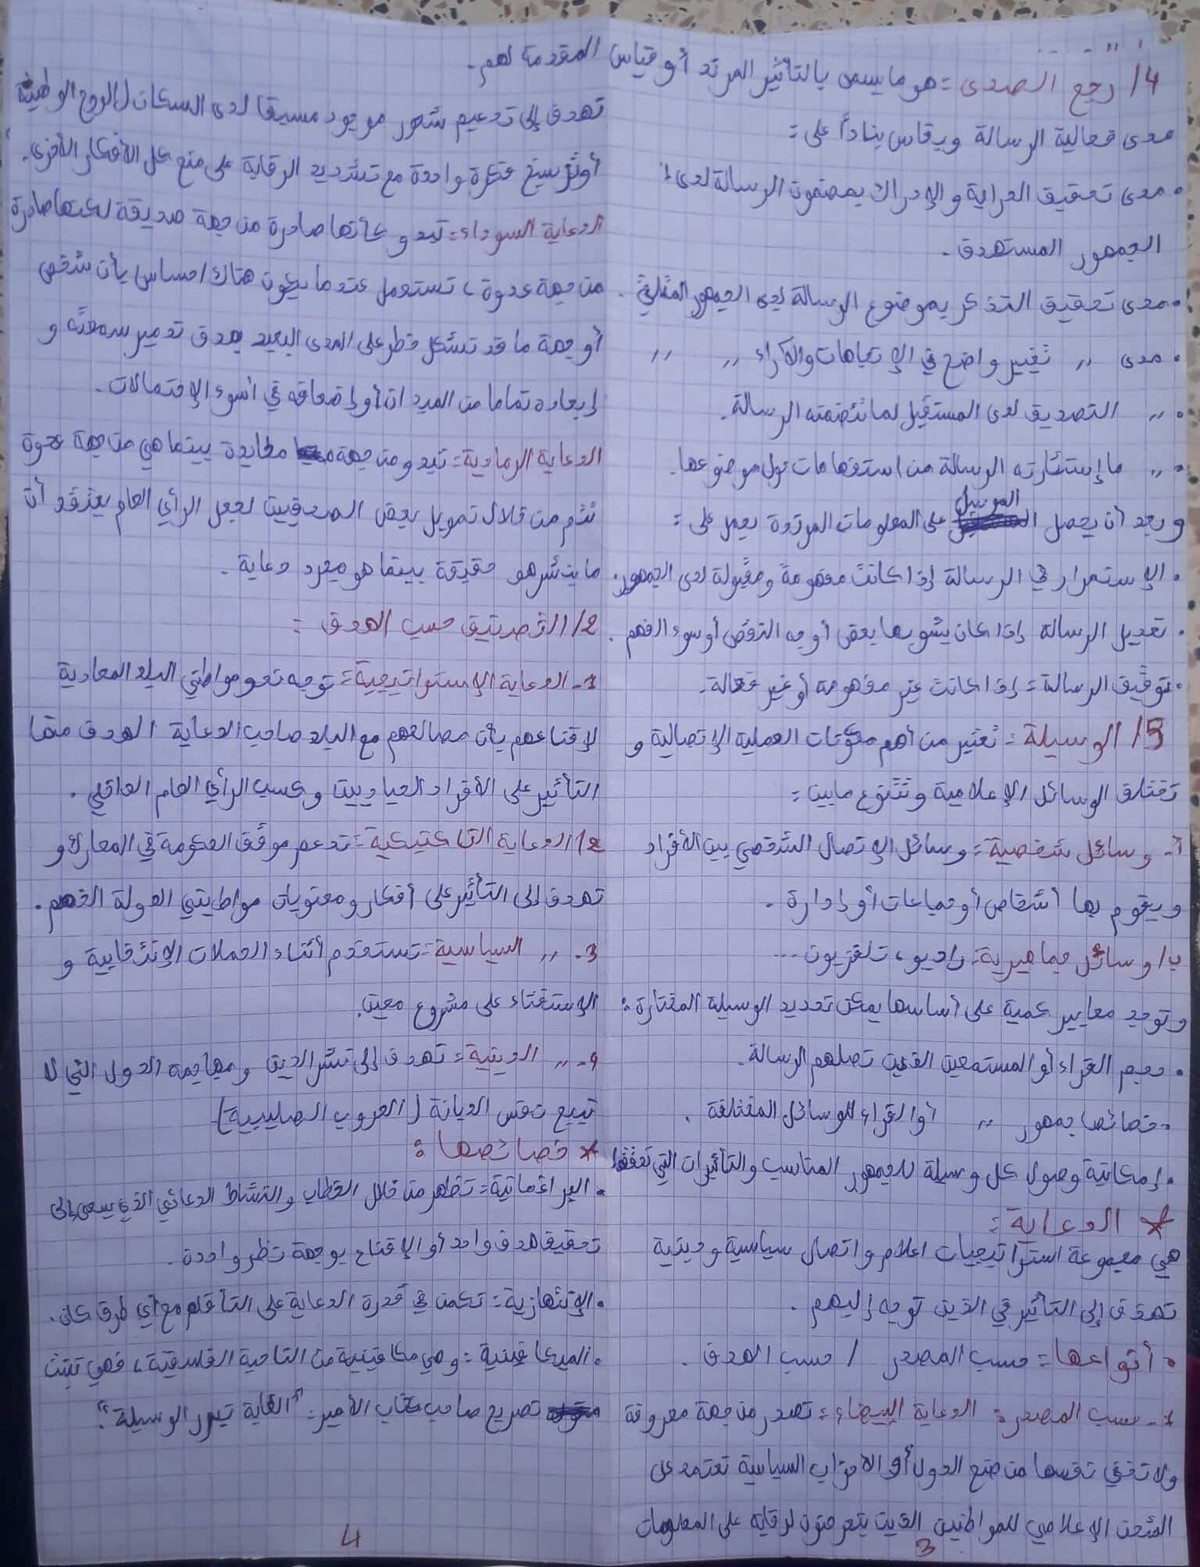 4/ رجع الصدى = هو ما يسمى بالتأثير المرتد أو قياس
مدى فعالية الرسالة ويقاس بناداً على =
• مدى تحقيق الدراية والإدراك بمضمون الرسالة لدى
الجمهور المستهدف.
• مدى تحقيق التذكر بموضوع الرسالة لدى الجمهور المتلقي.
• مدى " تغيير واضح في الإتجاهات والآراء " "
• " التصديق لدى المستقبل لما تتضمنه الرسالة.
• " ما إستثارته الرسالة من استفهامات حول موضوعها.
ويجد أن يحصل المرسل على المعلومات المرتدة يعمل على =
• الإستمرار في الرسالة إذا كانت مفهومة ومقبولة لدى الجمهور.
• تعديل الرسالة إذا كان يشوبها بعض أوجه النقص أو سوء الفهم.
• توقيف الرسالة = إذا كانت غير مفهومة أو غير فعالة.
5/ الوسيلة = تعتبر من أهم مكونات العملية الإتصالية و
تختلف الوسائل الإعلامية وتتنوع ما بين =
أ- وسائل شخصية = وسائل الإتصال الشخصي بين الأفراد
ويقوم بها أشخاص أو جماعات أو إدارة.
ب/ وسائل جماهيرية = راديو، تلفزيون ...
وتوجد معايير كمية على أساسها يمكن تحديد الوسيلة المختارة =
• حجم القراء أو المستمعين الذين تصلهم الرسالة.
• خصائص جمهور " أو القراء للوسائل المختلفة.
• إمكانية وصول كل وسيلة للجمهور المناسب والتأثيرات التي تحققها
* الدعاية =
هي مجموعة استراتيجيات اعلام واتصال سياسية و دينية
تهدف إلى التأثير في الذين توجه إليهم.
• أنواعها = حسب المصدر / حسب الهدف.
1- حسب المصدر = الدعاية البيضاء = تصدر من جهة معروفة
ولا تخفي نفسها من صنع الدول أو الأحزاب السياسية تعتمد على
الشحن الإعلامي للمواطنين الذين يتعرضون لرقابة على المعلومات
3
المقدمة لهم.
تهدف إلى تدعيم شعور موجود مسبقا لدى السكان (الروح الوطنية)
أو ترسيخ فكرة واحدة مع تشديد الرقابة على منع كل الأفكار الأخرى.
الدعاية السوداء = تبدو كأنها صادرة من جهة صديقة لكنها صادرة
من جهة عدوة، تستعمل عندما يكون هناك احساس بأن شخص
أو جهة ما قد تشكل خطر على المدى البعيد بهدف تدمير سمعته و
إبعاده تماما من الميدان أو إضعافه في أسوء الإحتمالات.
الدعاية الرمادية = تبدو من جهة محايدة بينما هي من جهة عدوة
تتم من خلال تمويل بعض الصحفيين لجعل الرأي العام يعتقد أن
ما ينشر هو حقيقة بينما هو مجرد دعاية.
2/ التصنيف حسب الهدف =
1- الدعاية الإستراتيجية = توجه نحو مواطني البلد المعادية
لإقناعهم بأن مصالحهم مع البلد صاحب الدعاية الهدف منها
التأثير على الأفراد الحياديين وكسب الرأي العام العالمي.
2/ الدعاية التاكتيكية = تدعم موقف الحكومة في المعارك و
تهدف إلى التأثير على أفكار ومعنويات مواطني الدولة الخصم.
3- " السياسية = تستخدم أثناء الحملات الإنتخابية و
الإستفتاء على مشروع معين.
4- " الدينية = تهدف إلى نشر الدين ومهاجمة الدول التي لا
تتبع نفس الديانة (الحروب الصليبية)
* خصائصها =
• البراغماتية = تظهر من خلال الخطاب والنشاط الدعائي الذي يسعى إلى
تحقيق هدف واحد أو الإقناع بوجهة نظر واحدة.
• الإنتهازية = تكمن في قدرة الدعاية على التأقلم مع أي ظرف كان.
• الميكافيلية = وهي مكافيلية من الناحية الفلسفية، فهي تبنت
تصريح صاحب كتاب الأمير = "الغاية تبرر الوسيلة".
4